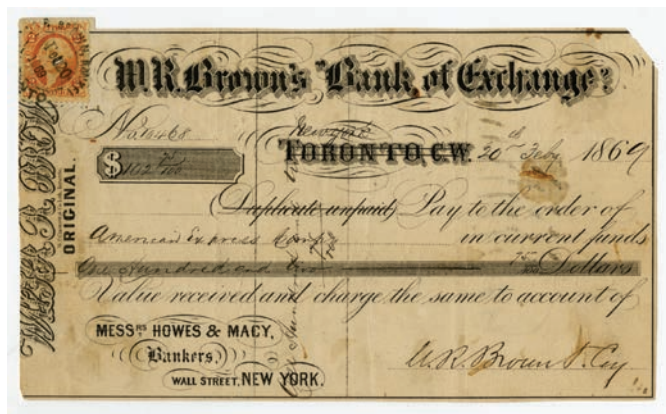 W.R. Brown's Bank of Exchange
New York
TORONTO C.W. 20th Feby 1869
$102 75/100
ORIGINAL.
(Duplicate unpaid) Pay to the order of
American Express Compy in current funds
One Hundred and two 75/100 Dollars
Value received and charge the same to account of
MESSRS HOWES & MACY,
Bankers,
WALL STREET, NEW YORK.
W.R. Brown & Co